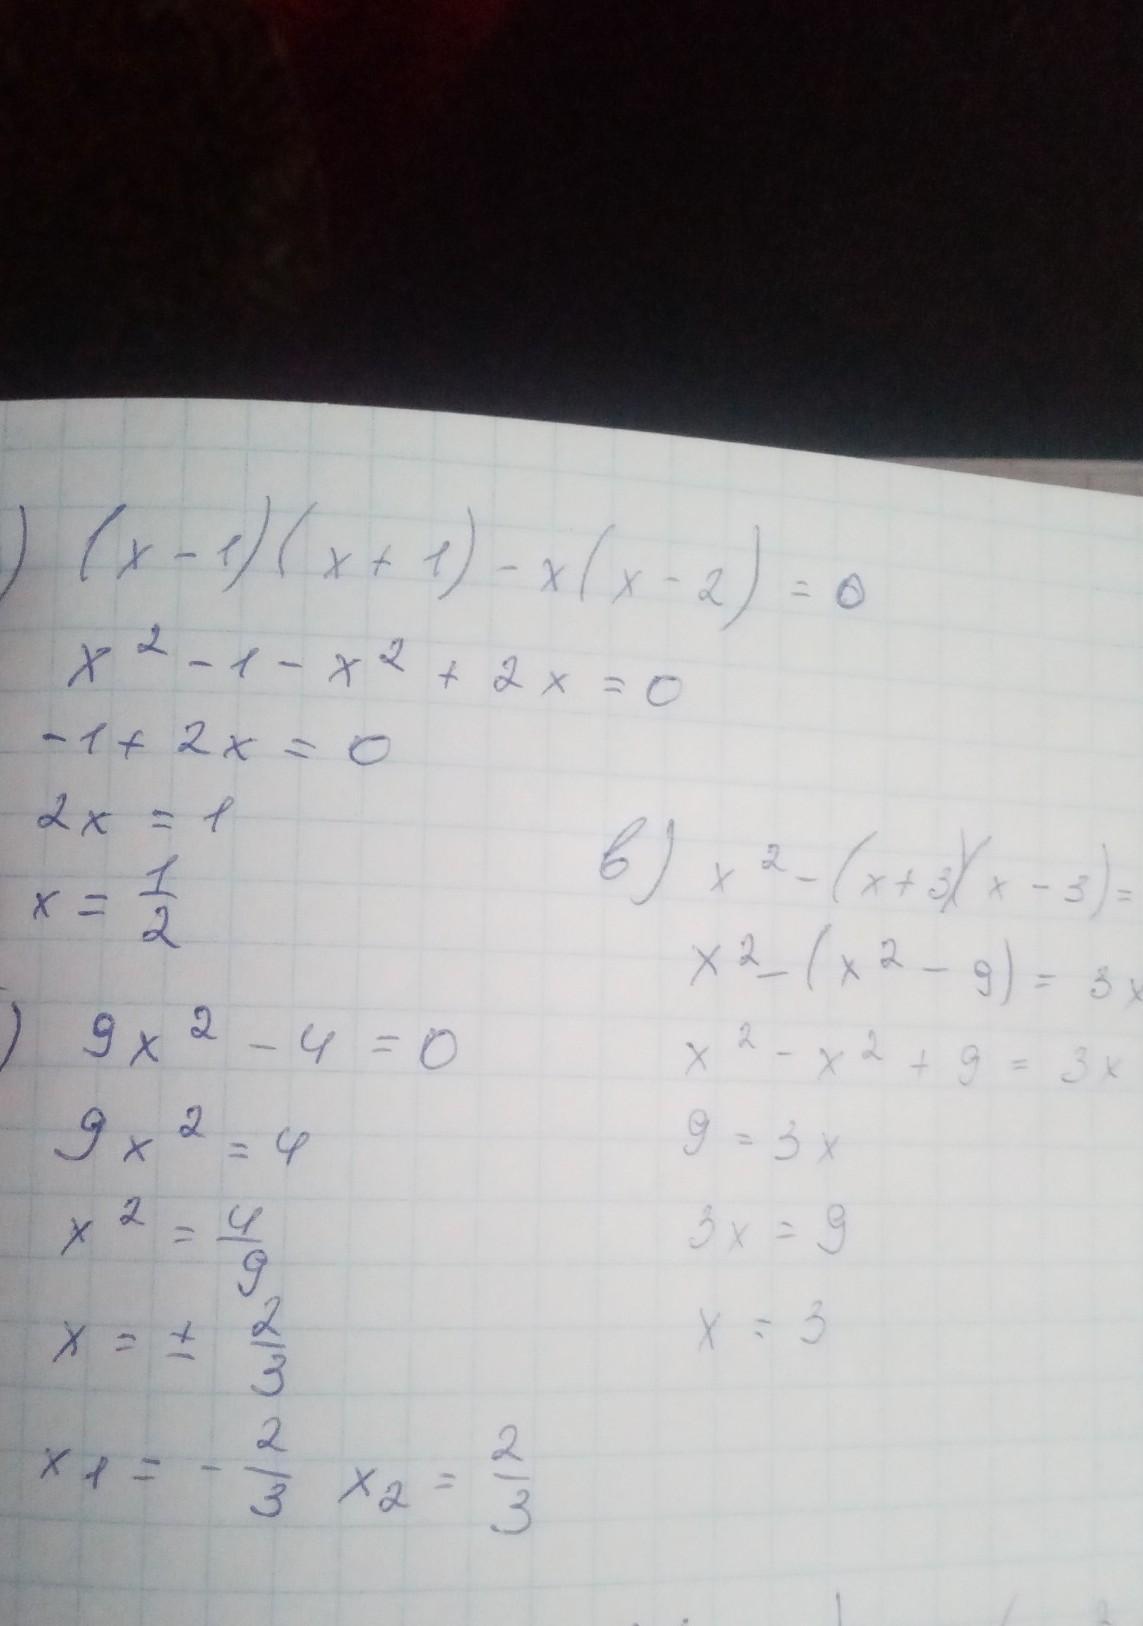 ) (x-1)(x+1)-x(x-2)=0
x²-1-x²+2x=0
-1+2x=0
2x=1
x=1/2
) 9x²-4=0
9x²=4
x²=4/9
x=±2/3
x₁=-2/3 x₂=2/3
в) x²-(x+3)(x-3)=
x²-(x²-9)=3x
x²-x²+9=3x
9=3x
3x=9
x=3